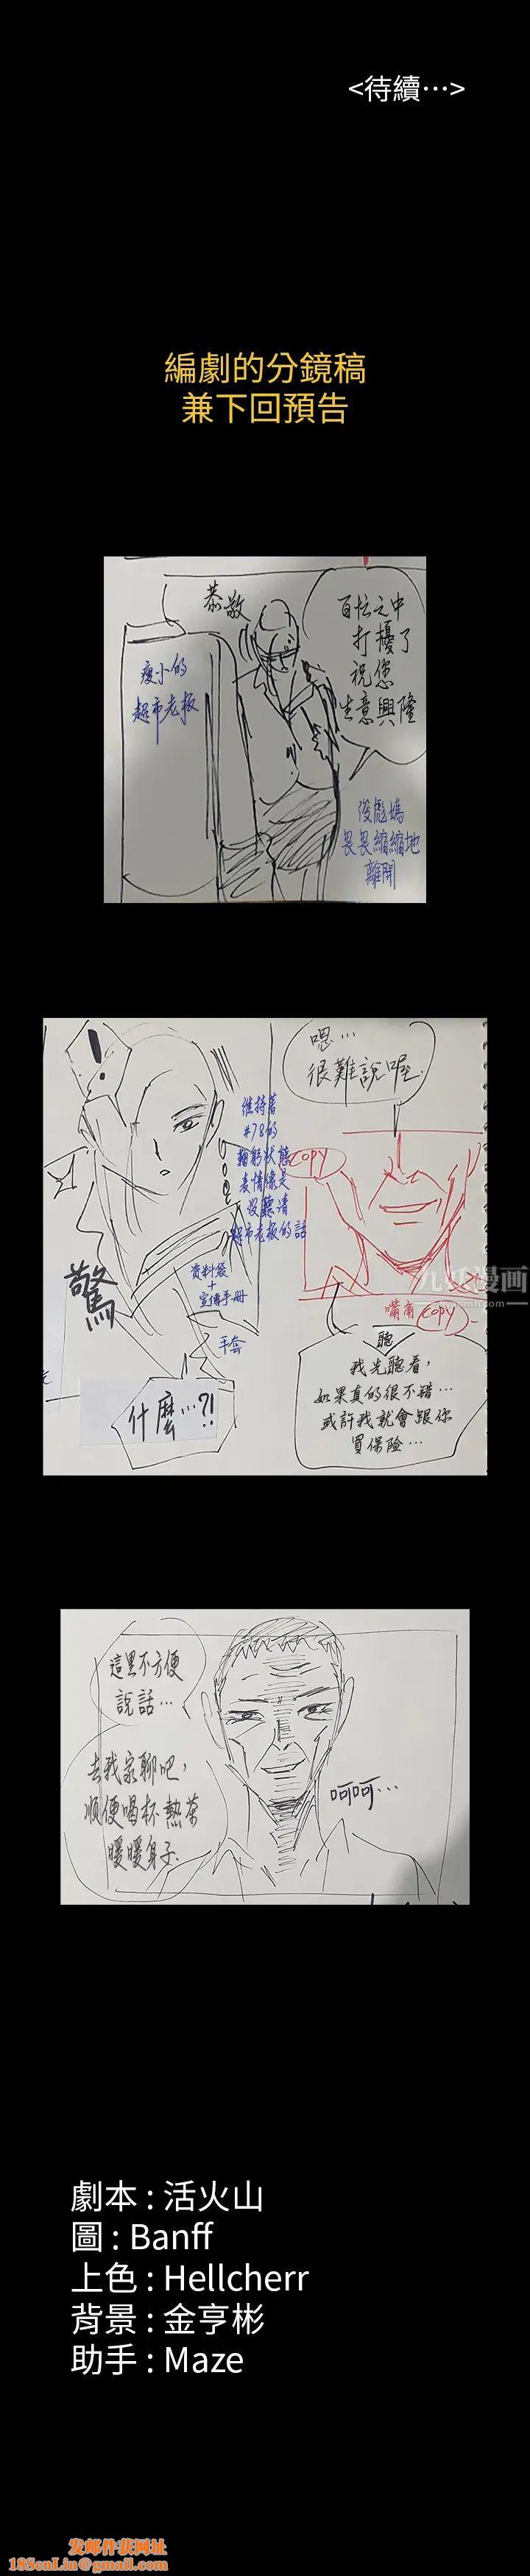 <待續…>
編劇的分鏡稿
兼下回預告
恭敬
百忙之中
打擾了
祝您
生意興隆
瘦小的
超市老板
俊彪媽
畏畏縮縮地
離開
嗯…
很難說喔.
!
維持著
#78的
鞠躬狀態
表情像是
沒聽清
超市老板的話
COPY
九妖漫画
嘴角 COPY
資料袋
+
宣傳手冊
手套
驚
什麼…?!
聽
我先聽看,
如果真的很不錯…
或許我就會跟你
買保險…
這里不方便
說話…
去我家聊吧,
順便喝杯熱茶
暖暖身子.
呵呵…
劇本 : 活火山
圖 : Banff
上色 : Hellcherr
背景 : 金亨彬
助手 : Maze
发邮件获网址
18SenLin@gmail.com